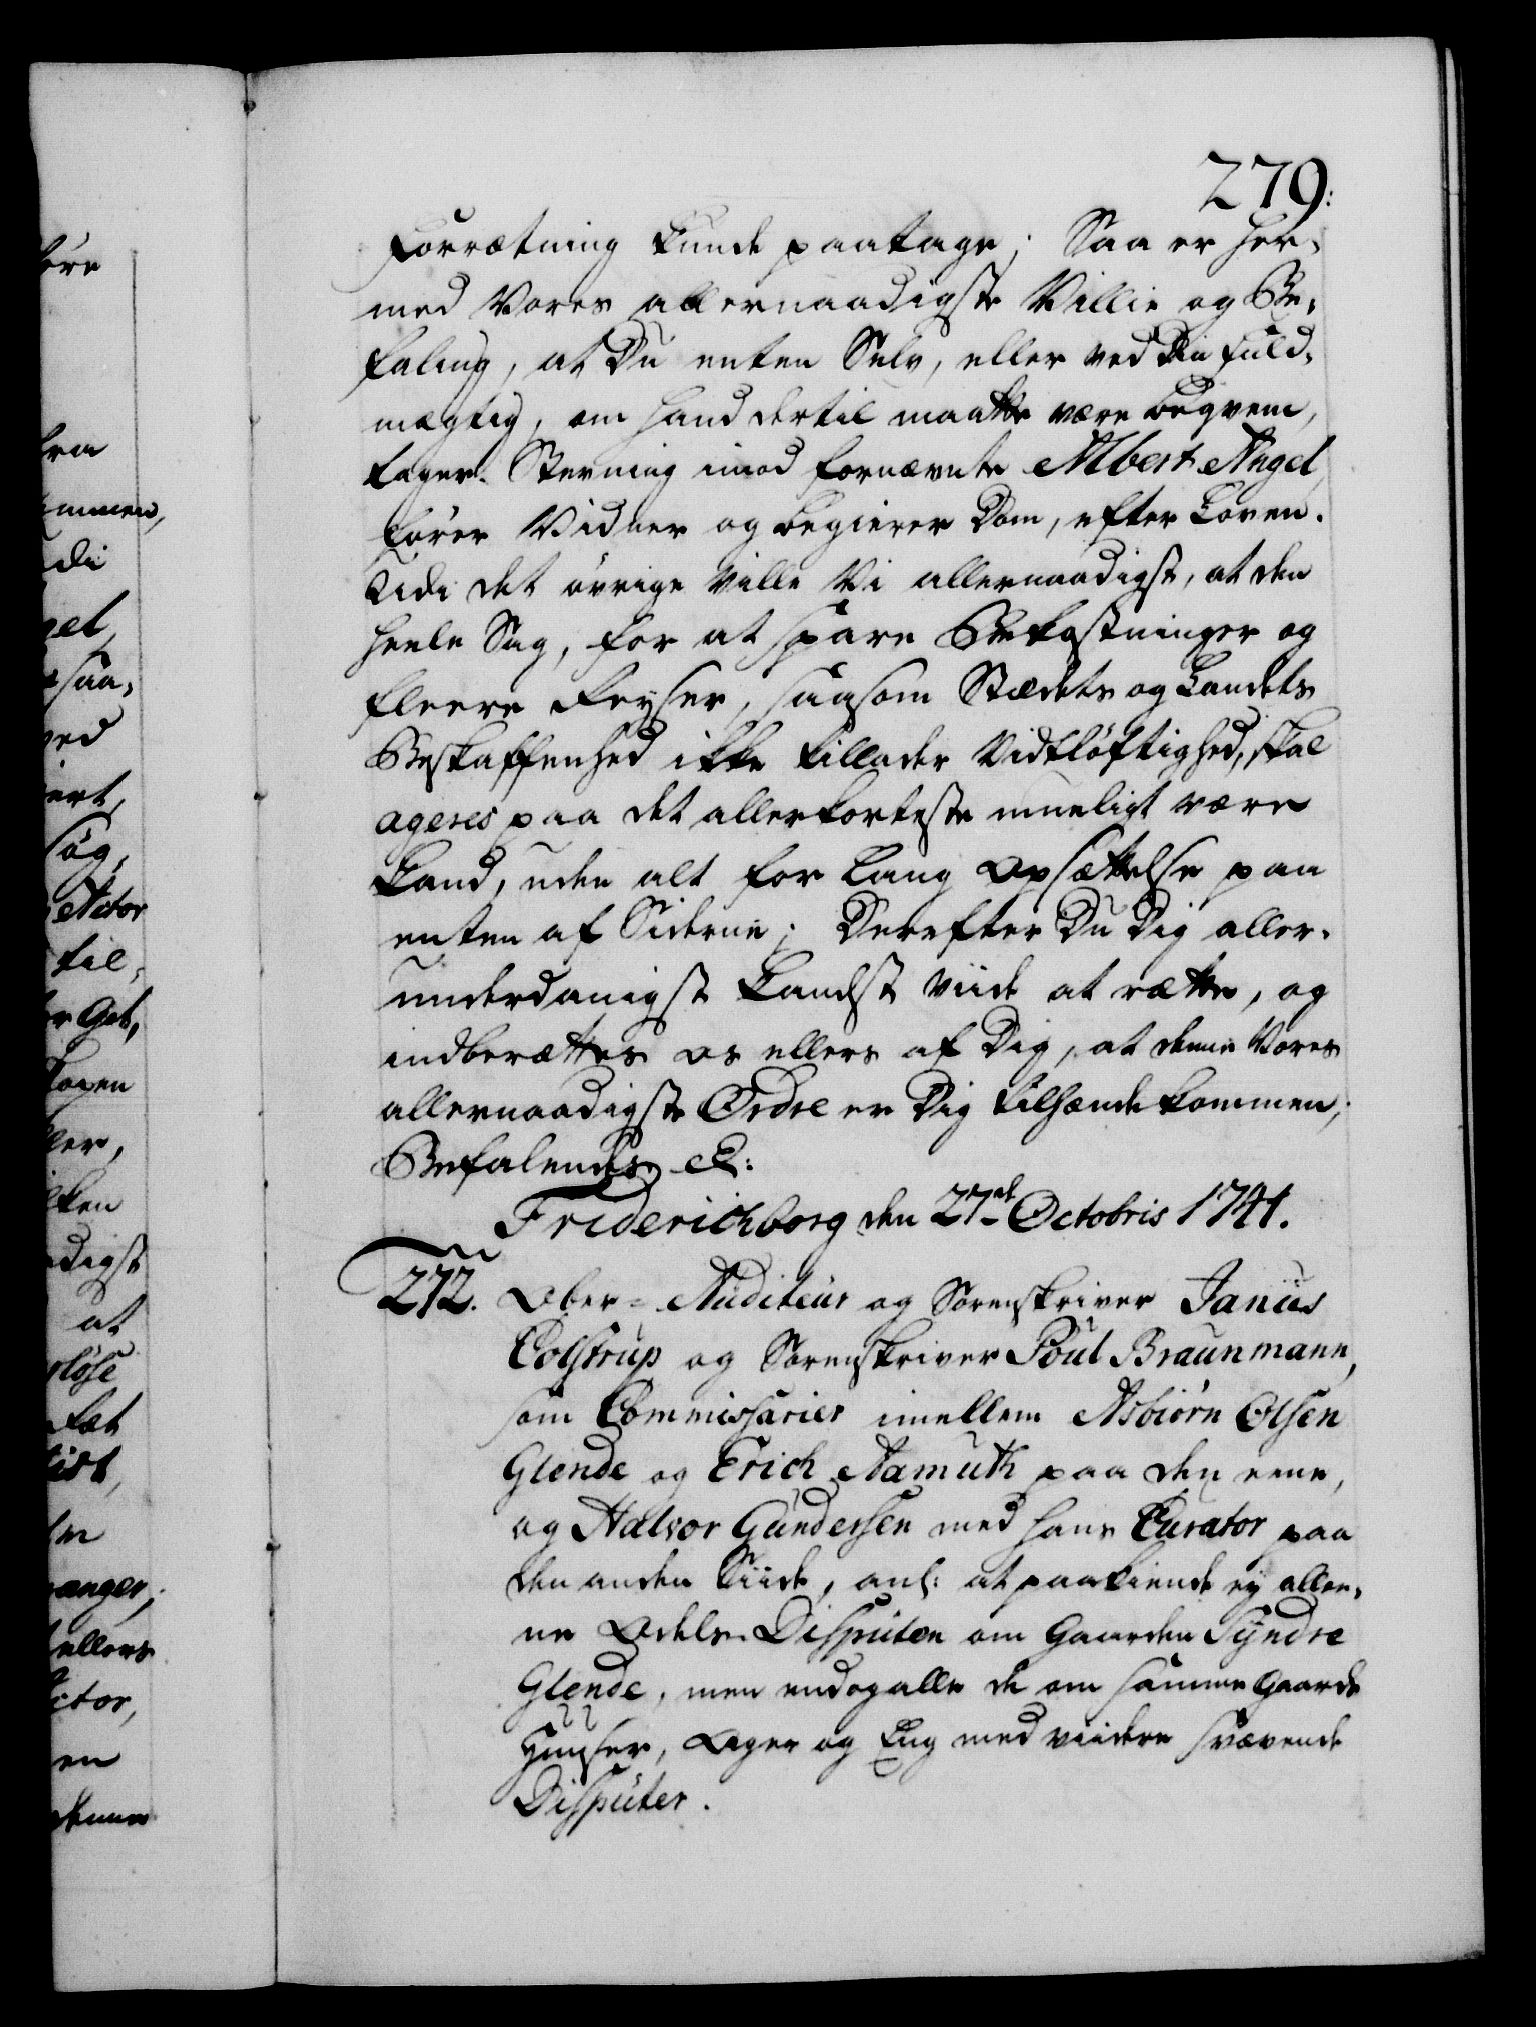 279.
Forrætning kunde paatage; Saa er her-
med Vores allernaadigste Villie og Be-
faling, at Du enten Selv, eller ved Din Fuld-
mægtig, om hand dertil maatte være beqvem,
tager Stevning imod fornævnte Albert Angel,
fører Vidner og begierer Dom, efter Loven.
Udi det øvrige Ville Vi allernaadigst, at den
heele Sag, for at spare Bekostninger og
fleere Reyser, saasom Stædets og Landets
Beskaffenhed ikke tillader Vidtløftighed, skal
ageres paa det allerkorteste mueligt være
kand, uden alt for Lang Opsættelse paa
enten af Siderne; Derefter Du Dig aller-
underdanigst kandst viide at rætte, og
indberættes os ellers af Dig, at denne Vores
allernaadigste Ordre er Dig tilhænde kommen;
Befalendes &:
Friderichborg den 27de Octobris 1741.
272. Ober-Auditeur og Sorenskriver Janus
Colstrup og Sorenskriver Poul Braunmann,
som Commissarier imellem Asbiørn Olsen
Glende og Erich Aamuth paa den eene,
og Halvor Gundersen med hans Curator paa
den anden Siide, anl: at paakiende ey allee-
ne Odels-Disputen om Gaarden Syndre
Glende, men endog alle de om samme Gaards
Huuser, Ager og Eng med viidere svævende
Disputer.
ere
fra
ommen,
di
gel,
saa-
ved
ert,
søg,
Actor
til-
er Geb,
ler,
ken
adigst
at
løse
tat
tist,
anger,
ellers
ctor,
en